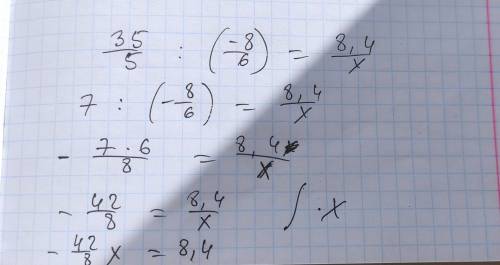 35/5 : (-8/6) = 8,4/x
7 : (-8/6) = 8,4/x
- 7·6/8 = 8,4/x
- 42/8 = 8,4/x ∫ ·x
- 42/8 x = 8,4